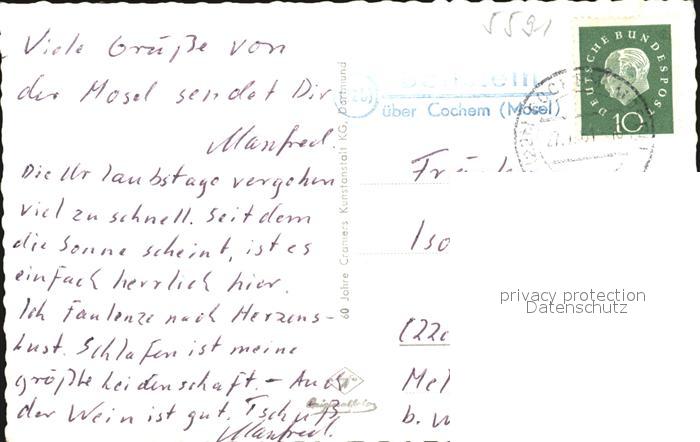 5591
Viele Grüße von
der Mosel sendet Dir
Manfred.
Die Urlaubstage vergehen
viel zu schnell. Seitdem
die Sonne scheint, ist es
einfach herrlich hier.
Ich faulenze nach Herzens-
lust. Schlafen ist meine
größte Leidenschaft. - Auch
der Wein ist gut. Tschüß
Manfred.
60 Jahre Cramers Kunstanstalt KG, Dortmund
über Cochem (Mosel)
DEUTSCHE BUNDESPOST
10
Iso
(22c
Mel
b. W
privacy protection
Datenschutz